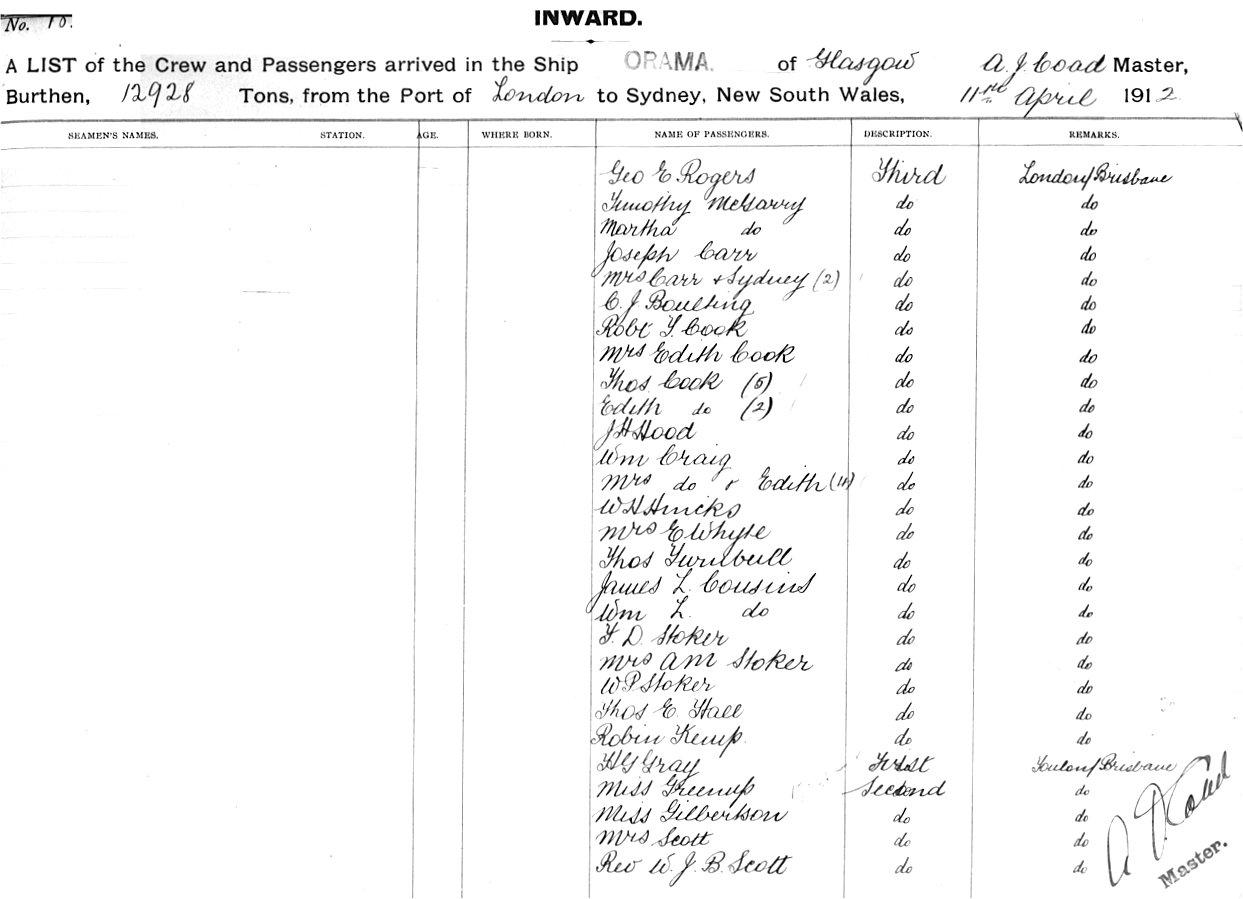 No. 10.
INWARD.
A LIST of the Crew and Passengers arrived in the Ship ORAMA. of Glasgow A. J. Coad Master,
Burthen, 12928 Tons, from the Port of London to Sydney, New South Wales, 11 April 1912
SEAMEN'S NAMES. STATION. AGE. WHERE BORN. NAME OF PASSENGERS. DESCRIPTION. REMARKS.
Geo E Rogers Third London/Brisbane
Timothy McGarry do do
Martha do do do
Joseph Carr do do
Mrs Carr + Sydney (2) do do
C. J Boulting do do
Robt T. Cook do do
Mrs Edith Cook do do
Thos Cook (5) do do
Edith do (2) do do
J H Hood do do
Wm Craig do do
Mrs do + Edith do do
W H Hincks do do
Mrs E Whyte do do
Thos Turnbull do do
James L. Cousins do do
Wm L. do do do
F. D. Stoker do do
Mrs A M Stoker do do
W P Stoker do do
Thos E. Hall do do
Robin Kemp. do do
H G Gray First Toulon/Brisbane
Miss Greenup Second do
Miss Gilbertson do do
Mrs Scott do do
Rev W. J. B. Scott do do
A J Coad
Master.